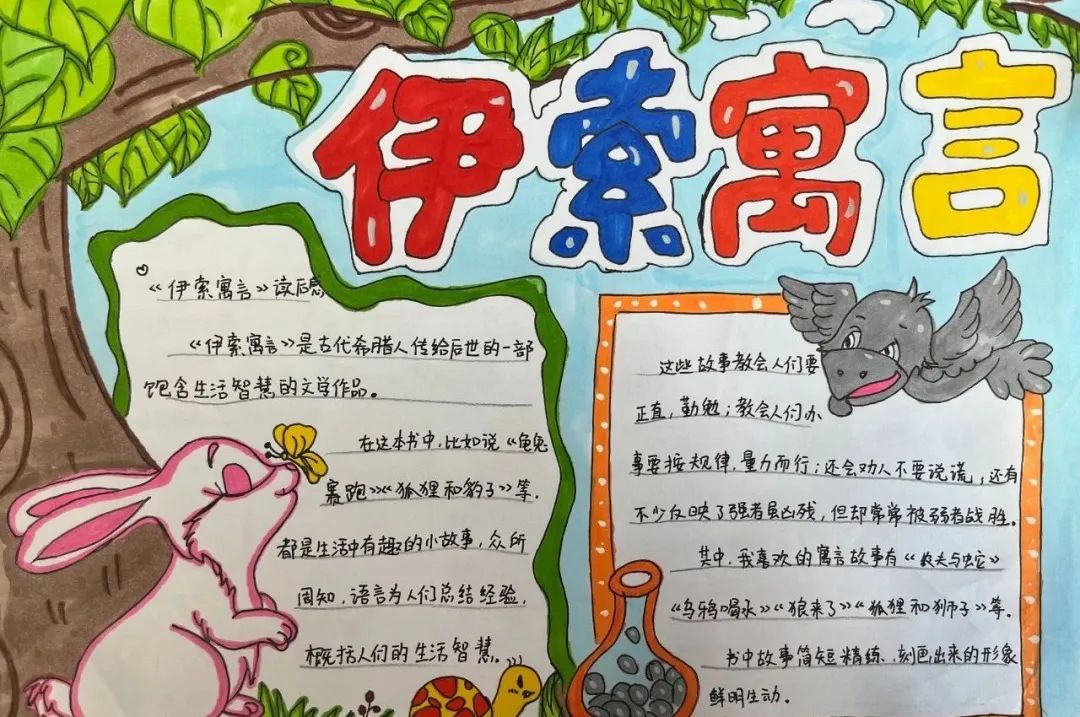 伊索寓言
《伊索寓言》读后感
《伊索寓言》是古代希腊人传给后世的一部
饱含生活智慧的文学作品。
在这本书中,比如说《龟兔
赛跑》《狐狸和豹子》等,
都是生活中有趣的小故事,众所
周知,语言为人们总结经验,
概括人们的生活智慧。
这些故事教会人们要
正直,勤勉;教会人们办
事要按规律,量力而行;还会劝人不要说谎,还有
不少反映了强者虽凶残,但却常常被弱者战胜。
其中,我喜欢的寓言故事有《农夫与蛇》
《乌鸦喝水》《狼来了》《狐狸和狮子》等。
书中故事简短精练,刻画出来的形象
鲜明生动。